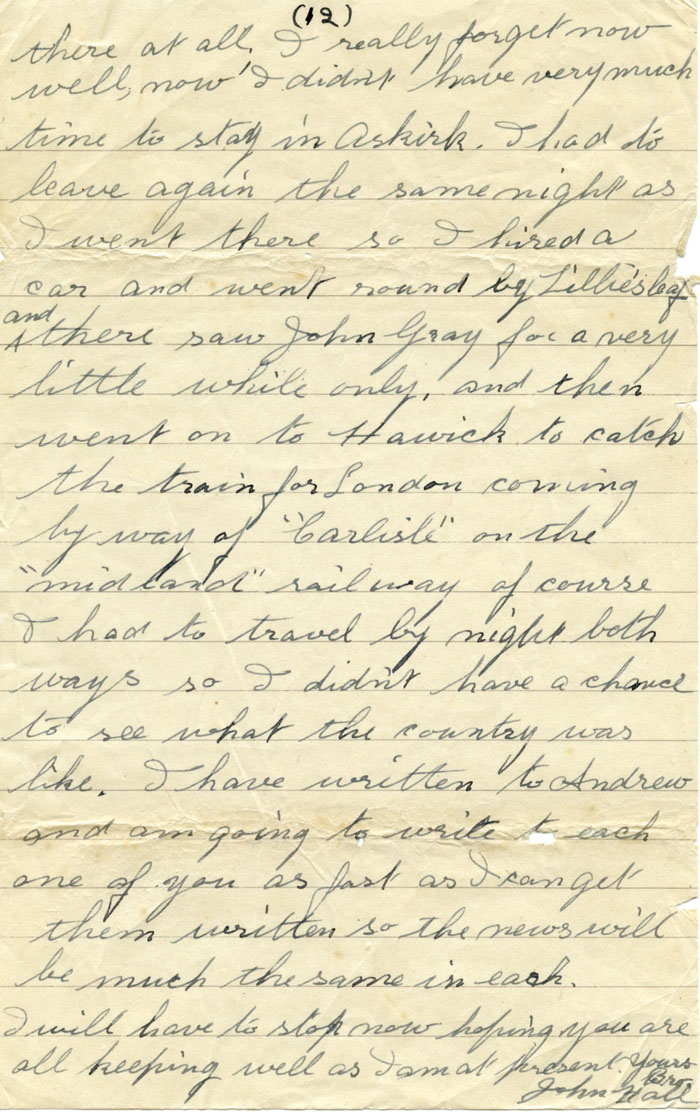 (12)
there at all. I really forget now
well, now I didn't have very much
time to stay in Askirk. I had to
leave again the same night as
I went there so I hired a
car and went round by Lilliesleaf
and
there saw John Gray for a very
little while only, and then
went on to Hawick to catch
the train for London coming
by way of "Carlisle" on the
"midland" railway of course
I had to travel by night both
ways so I didn't have a chance
to see what the country was
like. I have written to Andrew
and am going to write to each
one of you as fast as I can get
them written so the news will
be much the same in each.
I will have to stop now hoping you are
all keeping well as I am at present. Yours
Bro
John Hall